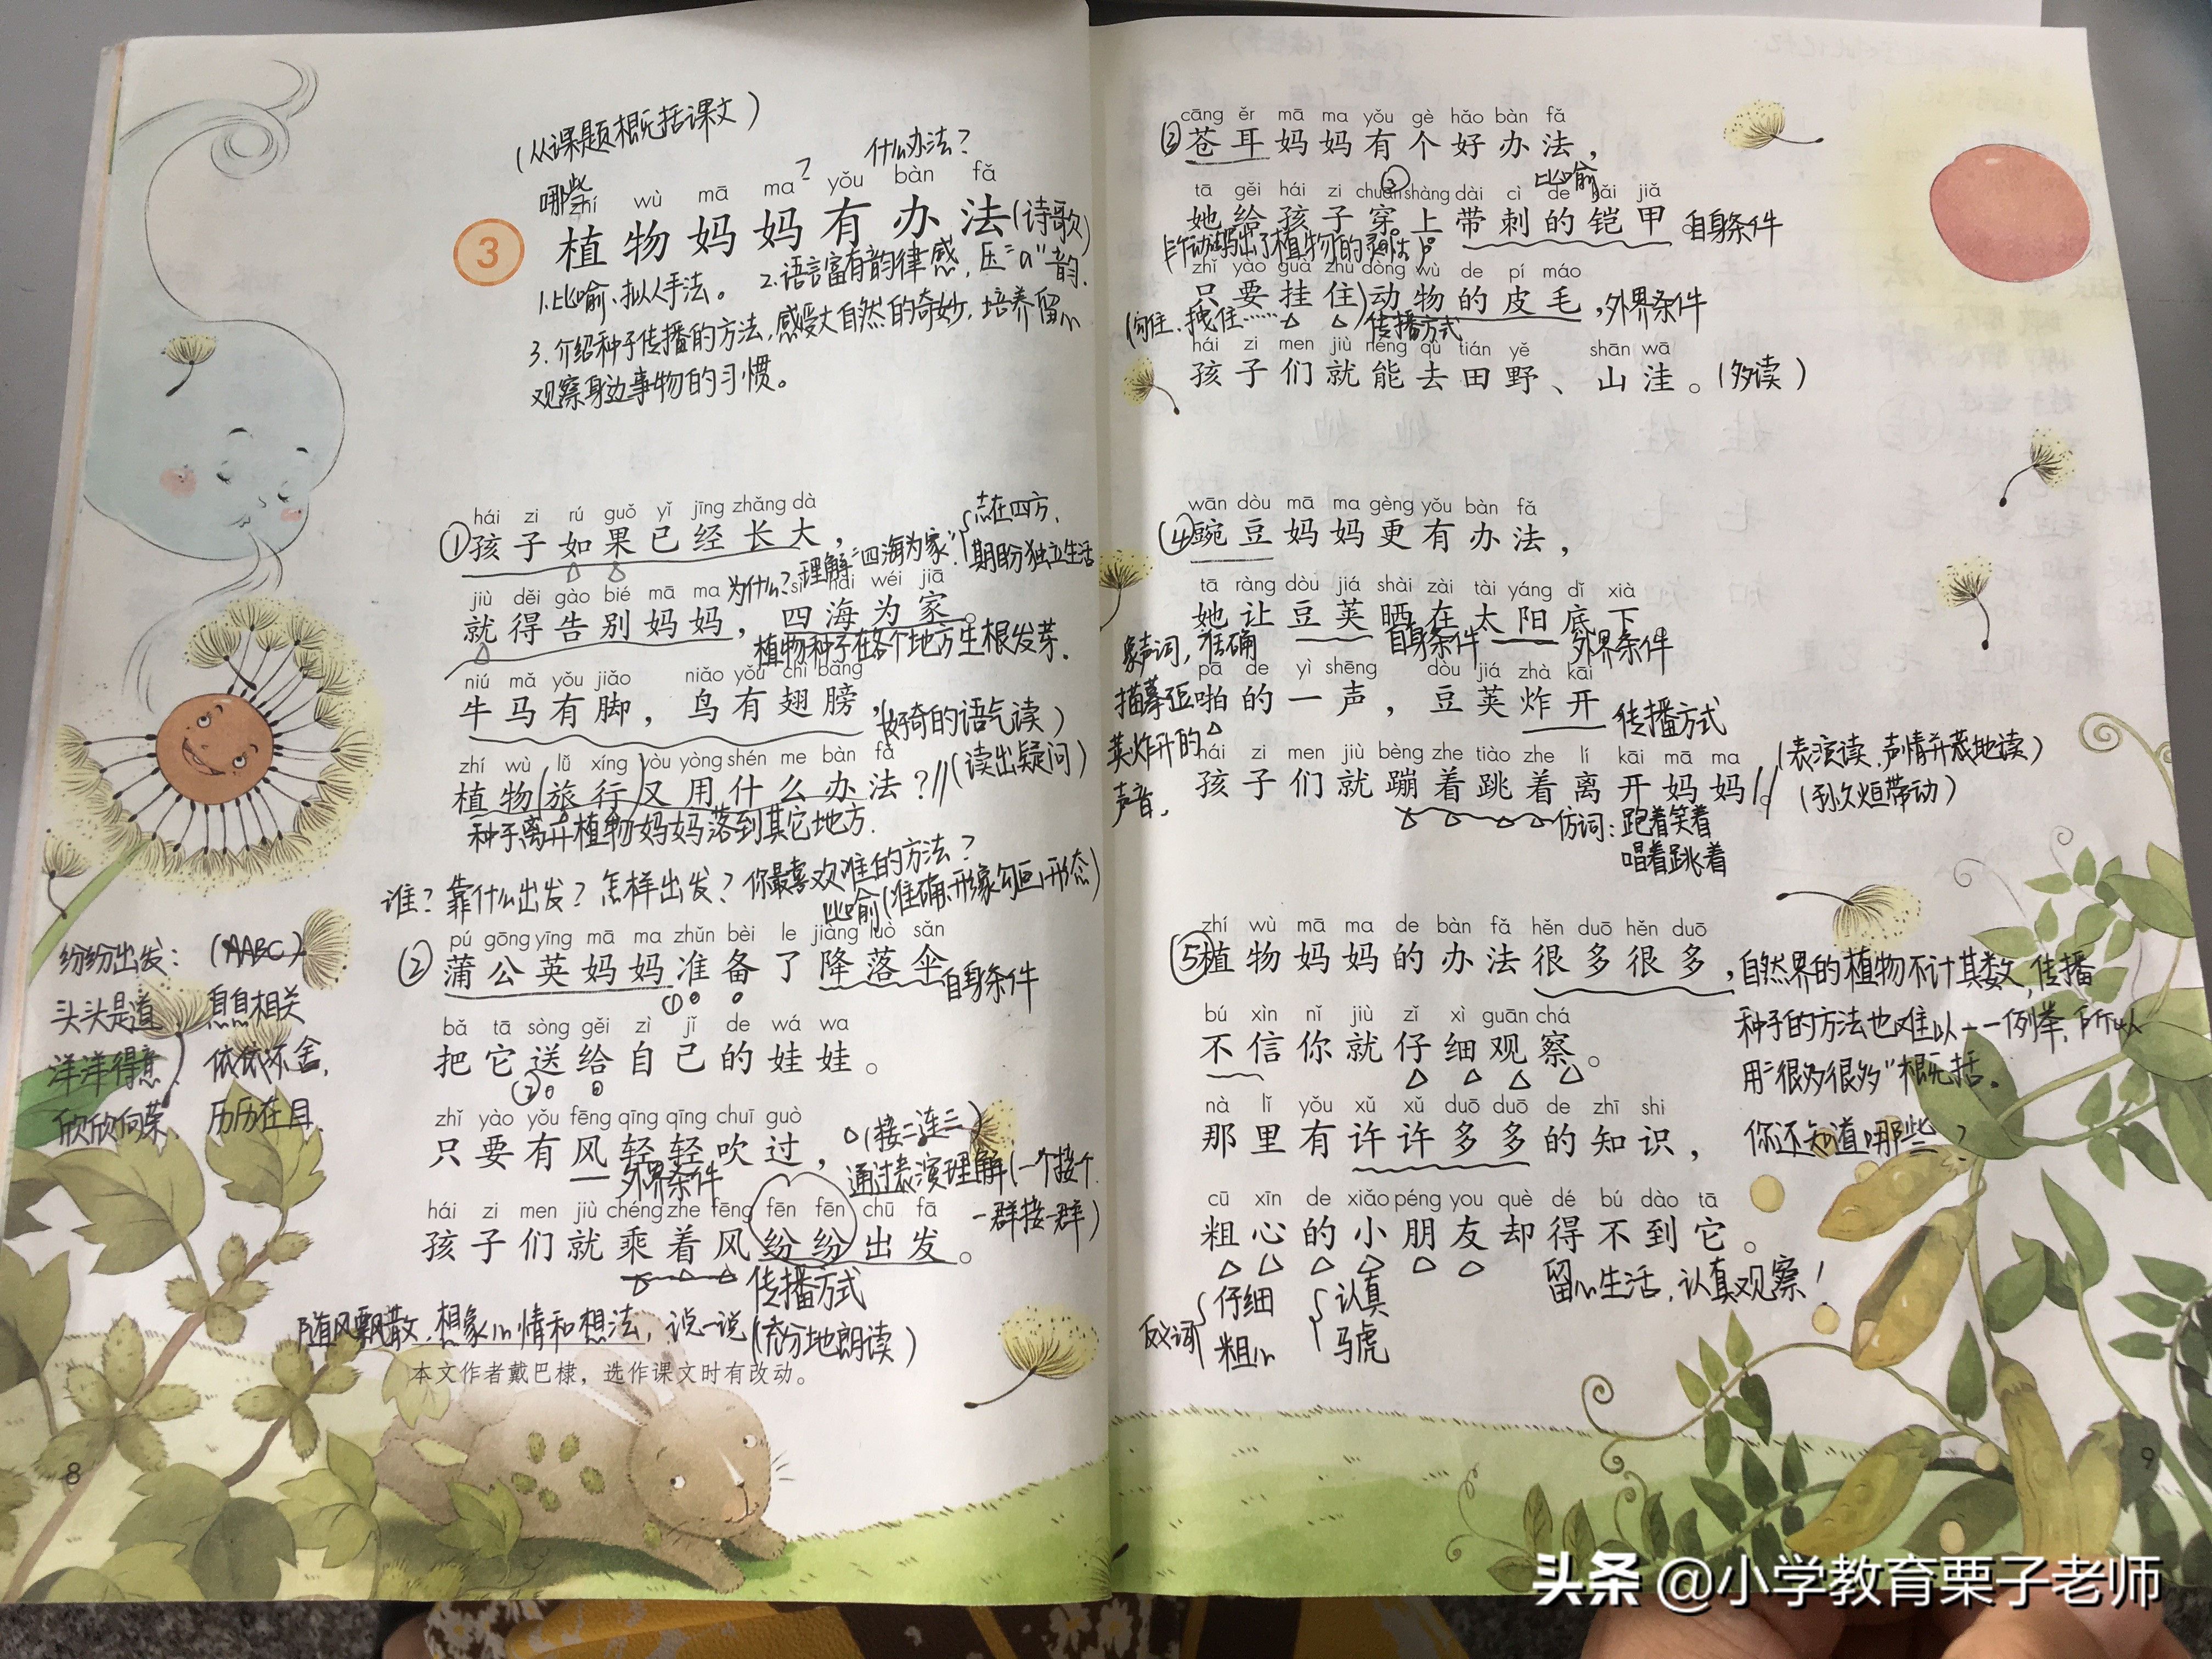 (从课题概括课文)
哪些 ? 什么办法?
zhí wù mā ma yǒu bàn fǎ
3 植物妈妈有办法(诗歌)
1.比喻、拟人手法。 2.语言富有韵律感,压"a"韵.
3.介绍种子传播的方法,感受大自然的奇妙,培养留心
观察身边事物的习惯。
hái zi rú guǒ yǐ jīng zhǎng dà
①孩子如果已经长大,
为什么?理解"四海为家". 志在四方.
期盼独立生活
jiù děi gào bié mā ma sì hǎi wéi jiā
就得告别妈妈,四海为家。
植物种子在各个地方生根发芽.
niú mǎ yǒu jiǎo niǎo yǒu chì bǎng
牛马有脚,鸟有翅膀,(好奇的语气读)
zhí wù lǚ xíng yòu yòng shén me bàn fǎ
植物(旅行)又用什么办法?//(读出疑问)
种子离开植物妈妈落到其它地方.
谁?靠什么出发?怎样出发?你最喜欢谁的方法?
比喻(准确、形象勾画形态)
pú gōng yīng mā ma zhǔn bèi le jiàng luò sǎn
②蒲公英妈妈准备了降落伞 自身条件
①
bǎ tā sòng gěi zì jǐ de wá wa
把它送给自己的娃娃。
②
zhǐ yào yǒu fēng qīng qīng chuī guò
只要有风轻轻吹过,
外界条件
(接二连三)
通过表演理解(一个接个.
一群接一群)
hái zi men jiù chéng zhe fēng fēn fēn chū fā
孩子们就乘着风纷纷出发。
传播方式
随风飘散.想象心情和想法,说一说(充分地朗读)
本文作者戴巴棣,选作课文时有改动。
纷纷出发: (AABC)
头头是道 息息相关
洋洋得意. 依依不舍.
欣欣向荣. 历历在目.
8
cāng ěr mā ma yǒu gè hǎo bàn fǎ
③苍耳妈妈有个好办法,
② 比喻
tā gěi hái zi chuān shàng dài cì de kǎi jiǎ
她给孩子穿上带刺的铠甲。自身条件
zhǐ yào guà zhù dòng wù de pí máo
只要挂住)动物的皮毛,外界条件
(勾住、拽住…… 传播方式
hái zi men jiù néng qù tián yě shān wā
孩子们就能去田野、山洼。(多读)
wān dòu mā ma gèng yǒu bàn fǎ
④豌豆妈妈更有办法,
tā ràng dòu jiá shài zài tài yáng dǐ xià
她让豆荚晒在太阳底下
自身条件 外界条件
象声词,准确
描摹豆
荚炸开的
声音.
pā de yì shēng dòu jiá zhà kāi
啪的一声,豆荚炸开 传播方式
hái zi men jiù bèng zhe tiào zhe lí kāi mā ma
孩子们就蹦着跳着离开妈妈。//
(表演读.声情并茂地读)
仿词:跑着笑着
唱着跳着
zhí wù mā ma de bàn fǎ hěn duō hěn duō
⑤植物妈妈的办法很多很多,
自然界的植物不计其数,传播
种子的方法也难以一一例举,所以
用"很多很多"概括.
bú xìn nǐ jiù zǐ xì guān chá
不信你就仔细观察。
nà lǐ yǒu xǔ xǔ duō duō de zhī shi
那里有许许多多的知识,
你还知道哪些?
cū xīn de xiǎo péng you què dé bú dào tā
粗心的小朋友却得不到它。
留心生活,认真观察!
反义词 仔细 认真
粗心 马虎
9
头条 @小学教育栗子老师